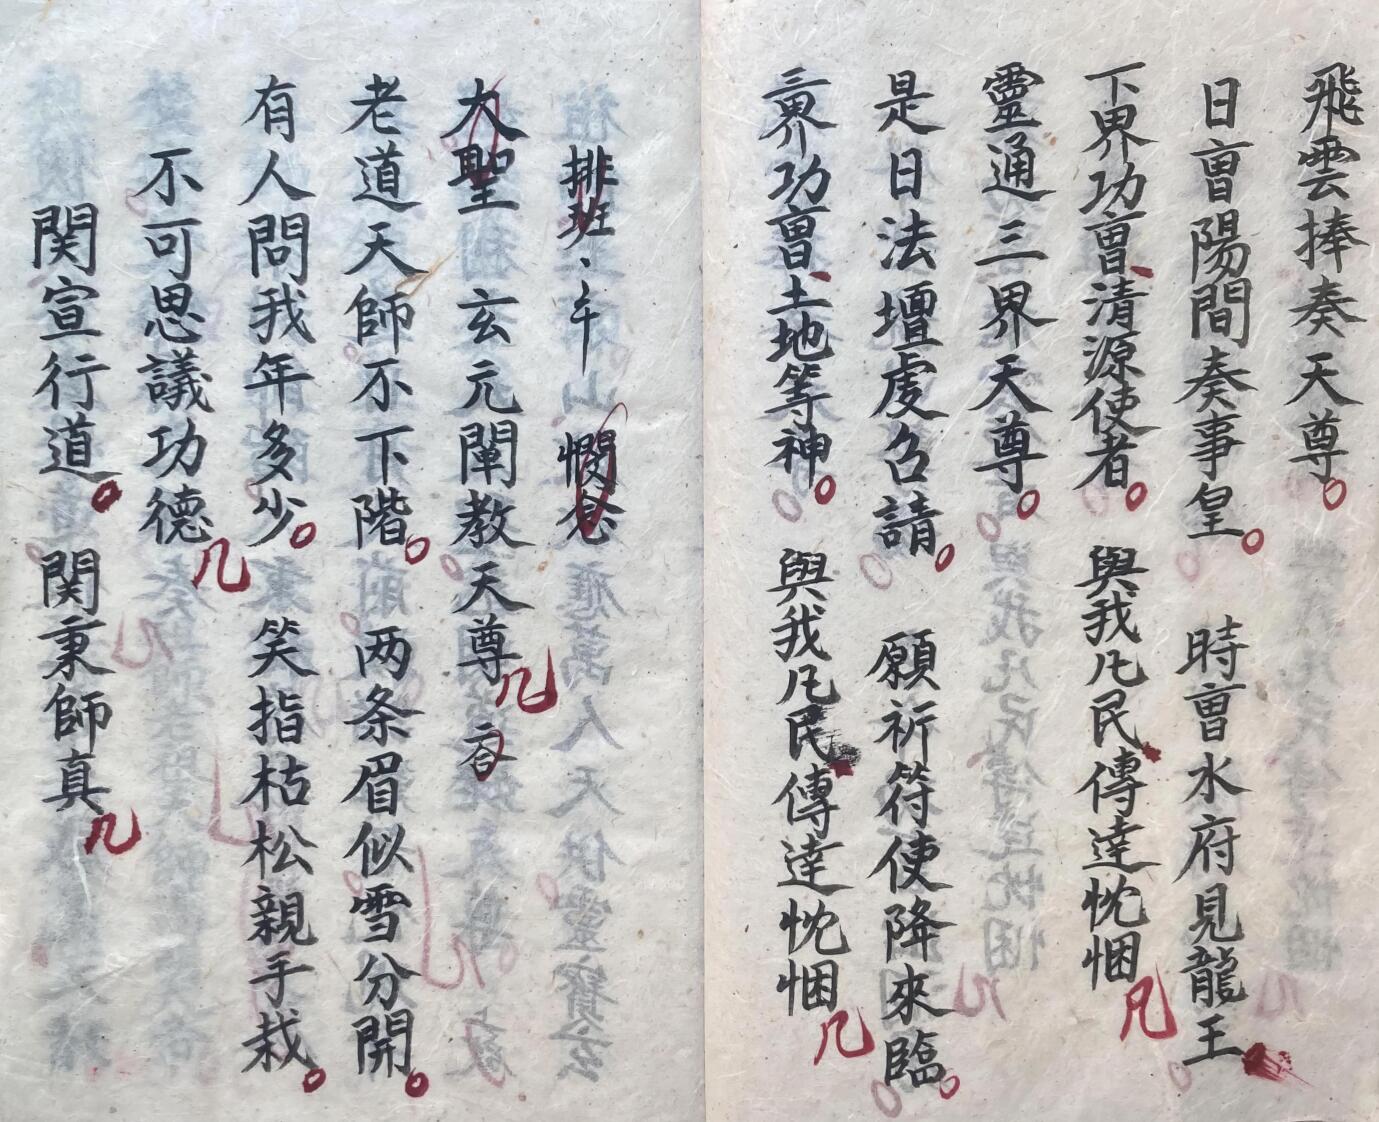 飛雲捧奏天尊
日曺陽間奏事皇 時曺水府見龍王
下界功曺清源使者 與我凡民傳達忱悃
靈通三界天尊
是日法壇虔召請 願祈符使降來臨
三界功曺土地等神 與我凡民傳達忱悃
排班 憫念
大聖 玄元闡教天尊
老道天師不下階 两条眉似雪分開
有人問我年多少 笑指枯松親手栽
不可思議功德
関宣行道 関秉師真